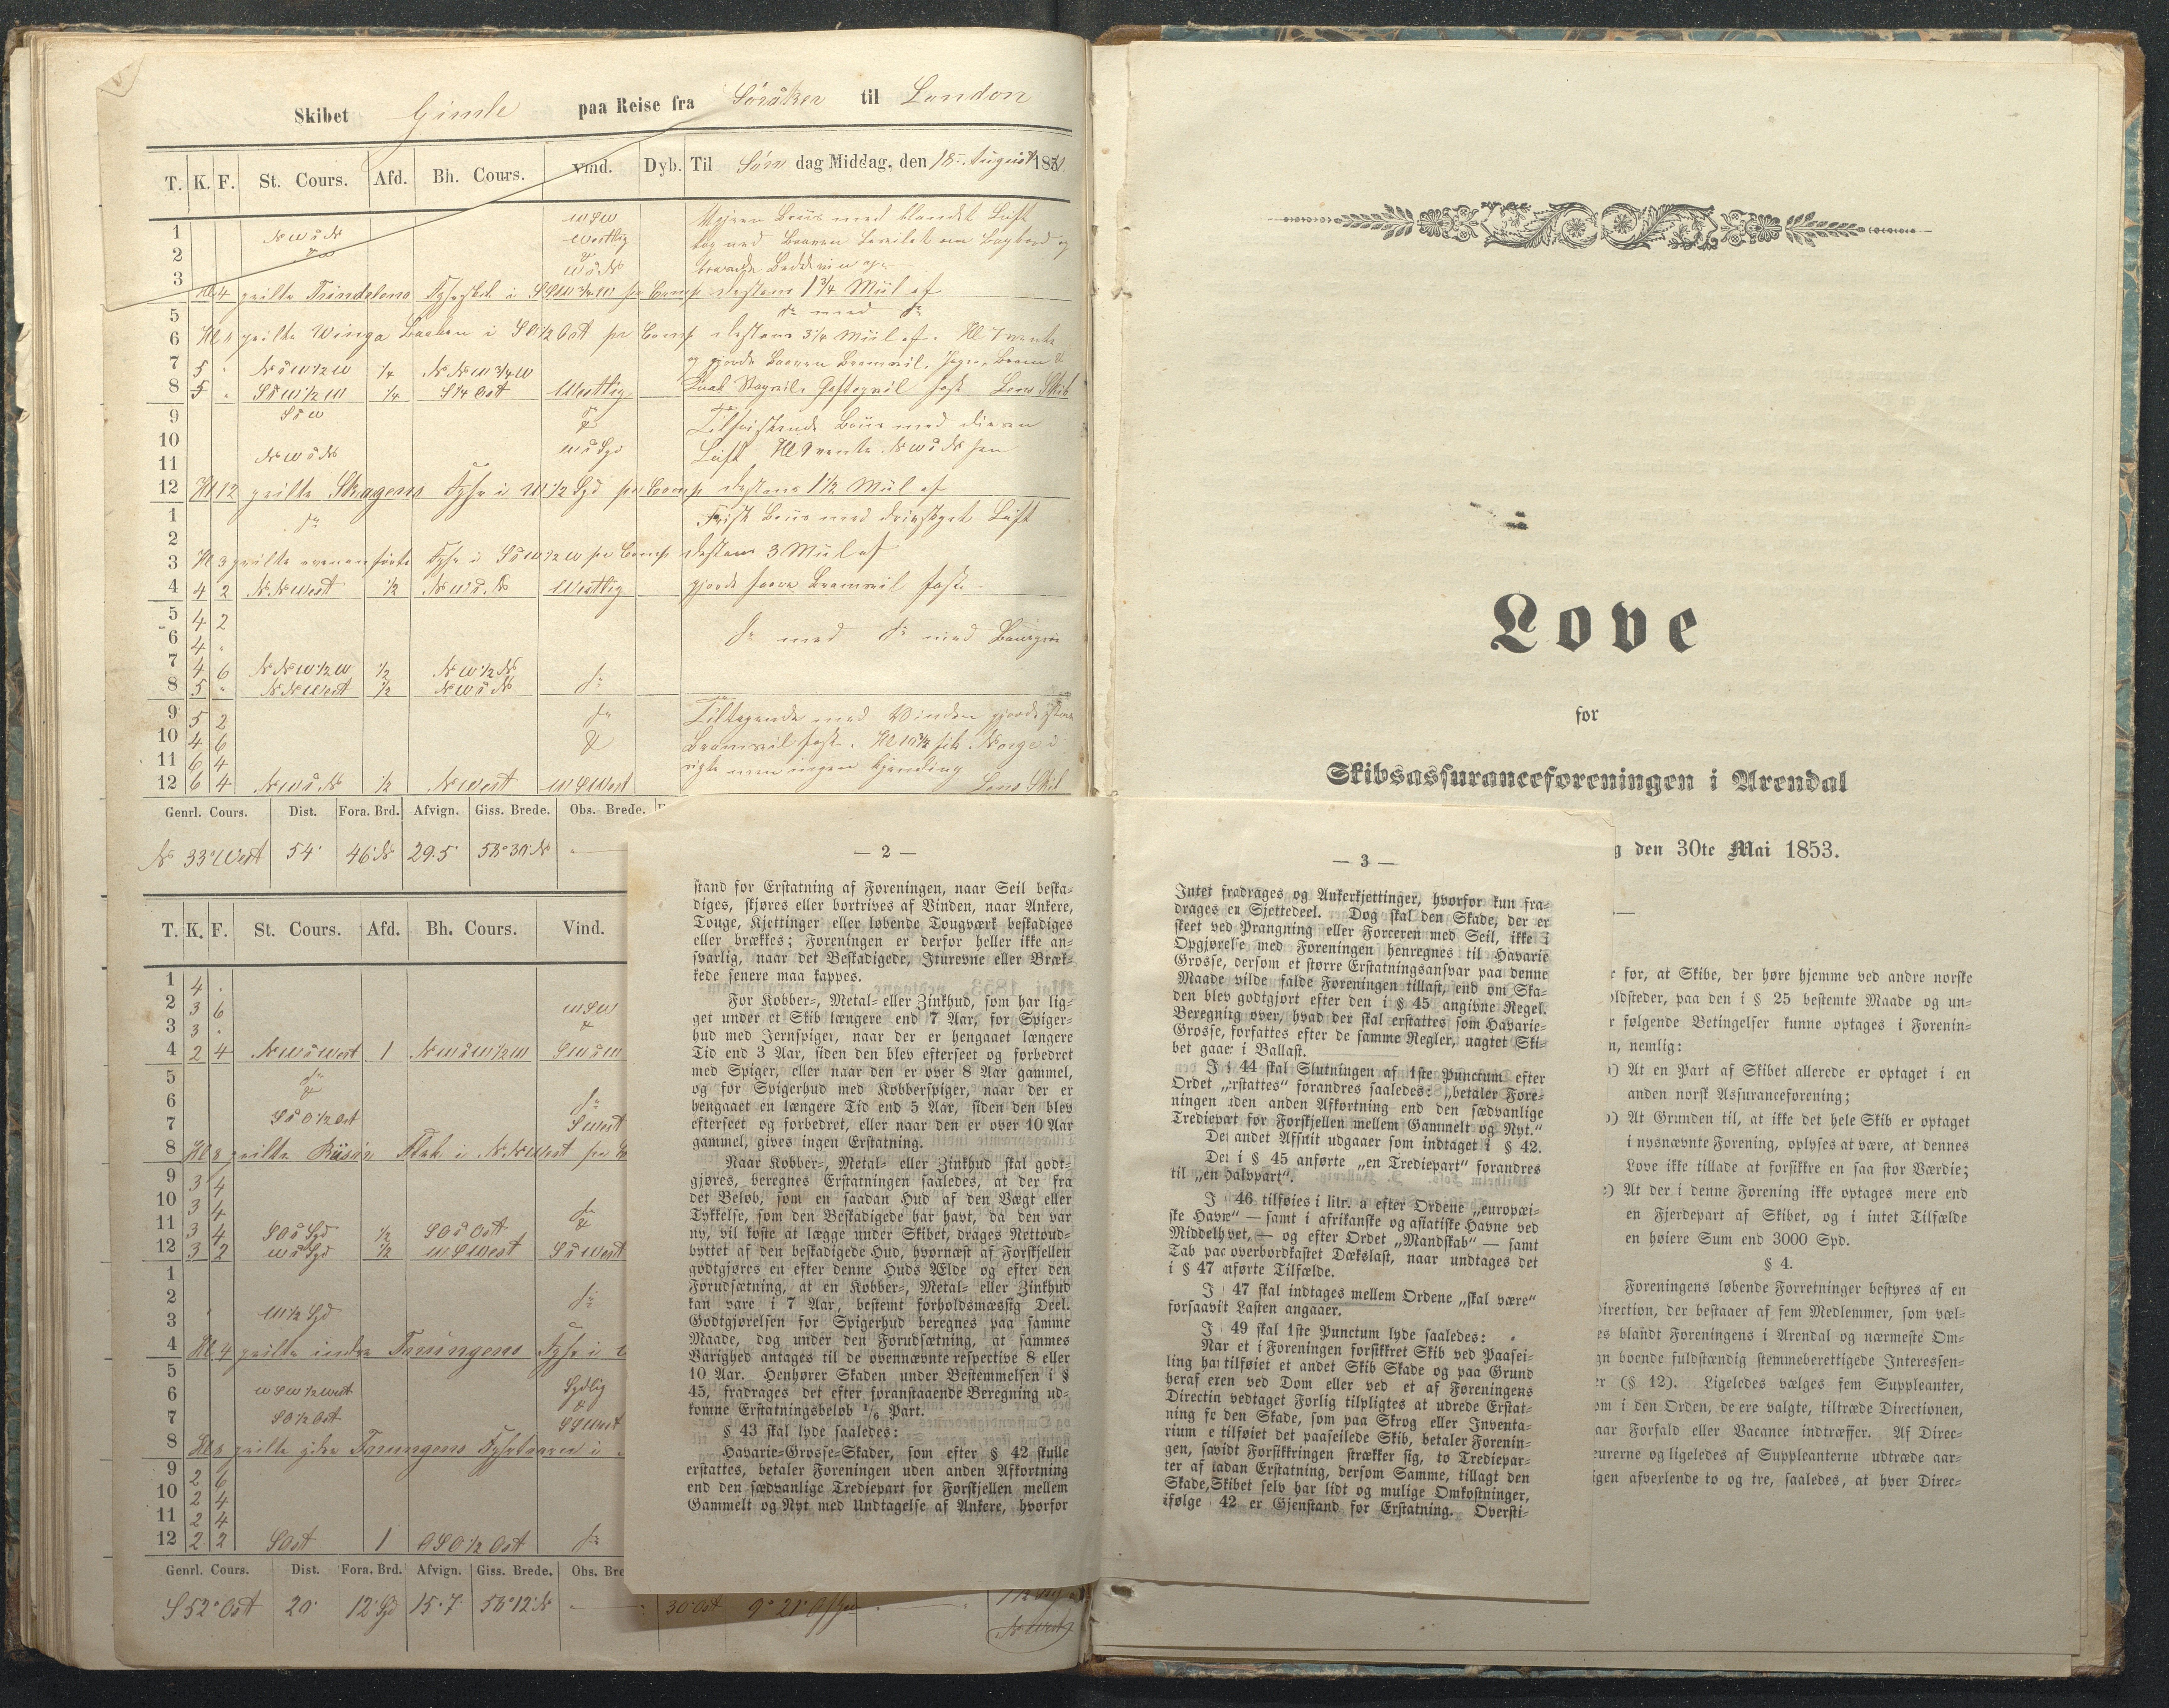 Skibet Gimle paa Reise fra Söråker til London
T. K. F. St. Cours. Afd. Bh. Cours. Vind. Dyb. Til Søn dag Middag, den 18 August 187
1 WSW
2 NWoN Westlig
3 WoN
Kl 4 peilte Trindelens Fyrskib i SSW 3/4 W pr Comp distans 1 3/4 Miil af
5 do med do
6 Kl peilte Winga Baaken i SO 1/2 Ost pr Comp distans 3 1/4 Miil af.
7 5 . NoW 1/2 W 1/4 N.NW 3/4 W
8 5 . SoW 1/2 W 1/4 S 1/4 Ost Westlig
9 SoW do
10 NWoN WoSyd
11
12 Kl 12 peilte Skagens Fyr i W 1/2 Syd pr Comp distans 1 1/2 Miil af
1 do Frisk med Luft
2
3 Kl 3 peilte Fyr i SoW 1/2 W pr Comp distans 3 Miil af
4 4 2 N.N West 1/2 NWoN Westlig gjorde Bramseil fast
5 4 2
6 4 . do med do med
7 4 6 N.NW 1/2 W 1/2 NW 1/2 N
8 5 . N.N West 1/2 NWoN do
9 5 2 do Tiltagende med Vinden gjorde
10 4 6 Bramseil fast. Kl 10 1/2 fik Norge i
11 6 4 sigte men ingen Kjending
12 6 4 NWoN 1/2 N West WSWest
Genrl. Cours. Dist. Fora. Brd. Afvign. Giss. Brede. Obs. Brede.
N 33° West 54' 46' N 29.5 58° 30' N
T. K. F. St. Cours. Afd. Bh. Cours. Vind.
1 4 .
2 3 6 WSW
3 3 .
4 2 4 NWoWest 1 NWoW 1/2 W SWoW
5 do
6 do
7 SoO 1/2 Ost SWest
8 Kl 8 peilte Risör Flak i N.N West pr
9 3 4
10 3 4 do
11 3 4 SOoSyd 1/2 SOoOst
12 3 2 WoSyd 1/2 WSWest SoWest
1
2 do
3 W 1/2 Syd
4 Kl 4 peilte indre Torungens Fyr i
5
6 WSW 1/2 West Sydlig
7 SO 1/2 Ost SSWest
8 Kl 8 peilte ydre Torungens Fyrtaarn i
9 2 6
10 2 4
11 2 4
12 2 2 SOst 1 OSO 1/2 Ost do
Genrl. Cours. Dist. Fora. Brd. Afvign. Giss. Brede. Obs. Bre
S 52° Ost 20' 12' Syd 15.7 58° 12' N 30' Ost 9° 21'
— 2 —
stand for Erstatning af Foreningen, naar Seil beska-
diges, skjøres eller bortrives af Vinden, naar Ankere,
Touge, Kjettinger eller løbende Tougværk beskadiges
eller brækkes; Foreningen er derfor heller ikke an-
svarlig, naar det Beskadigede, Iturevne eller Bræk-
kede senere maa kappes.
For Kobber-, Metal- eller Zinkhud, som har lig-
get under et Skib længere end 7 Aar, for Spiger-
hud med Jernspiger, naar der er hengaaet længere
Tid end 3 Aar, siden den blev efterseet og forbedret
med Spiger, eller naar den er over 8 Aar gammel,
og for Spigerhud med Kobberspiger, naar der er
hengaaet en længere Tid end 5 Aar, siden den blev
efterseet og forbedret, eller naar den er over 10 Aar
gammel, gives ingen Erstatning.
Naar Kobber-, Metal- eller Zinkhud skal godt-
gjøres, beregnes Erstatningen saaledes, at der fra
det Beløb, som en saadan Hud af den Vægt eller
Tykkelse, som den Beskadigede har havt, da den var
ny, vil koste at lægge under Skibet, drages Nettoud-
byttet af den beskadigede Hud, hvornæst af Forskjellen
godtgjøres en efter denne Huds Ælde og efter den
Forudsætning, at en Kobber-, Metal- eller Zinkhud
kan vare i 7 Aar, bestemt forholdsmæssig Deel.
Godtgjørelsen for Spigerhud beregnes paa samme
Maade, dog under den Forudsætning, at sammes
Varighed antages til de ovennævnte respective 8 eller
10 Aar. Henhører Skaden under Bestemmelsen i §
45, fradrages det efter foranstaaende Beregning ud-
komne Erstatningsbeløb 1/6 Part.
§ 43 skal lyde saaledes:
Havarie-Grosse-Skader, som efter § 42 skulle
erstattes, betaler Foreningen uden anden Afkortning
end den sædvanlige Trediepart for Forskjellen mellem
Gammelt og Nyt med Undtagelse af Ankere, hvorfor
— 3 —
Intet fradrages og Ankerkjettinger, hvorfor kun fra-
drages en Sjettedeel. Dog skal den Skade, der er
skeet ved Prangning eller Forceren med Seil, ikke i
Opgjørelse med Foreningen henregnes til Havarie
Grosse, dersom et større Erstatningsansvar paa denne
Maade vilde falde Foreningen tillast, end om Ska-
den blev godtgjort efter den i § 45 angivne Regel.
Beregning over, hvad der skal erstattes som Havarie-
Grosse, forfattes efter de samme Regler, uagtet Ski-
bet gaaer i Ballast.
I § 44 skal Slutningen af 1ste Punctum efter
Ordet „erstattes" forandres saaledes: „betaler Fore-
ningen uden anden Afkortning end den sædvanlige
Trediepart for Forskjellen mellem Gammelt og Nyt."
Det andet Afsnit udgaaer som indtaget i § 42.
Det i § 45 anførte „en Trediepart" forandres
til „en Halvpart".
I 46 tilføies i litr. a efter Ordene „europæi-
ske Havne" — samt i afrikanske og asiatiske Havne ved
Middelhavet, — og efter Ordet „Mandskab" — samt
Tab paa overbordkastet Dækslast, naar undtages det
i § 47 anførte Tilfælde.
I 47 skal indtages mellem Ordene „skal være"
forsaavidt Lasten angaaer.
I 49 skal 1ste Punctum lyde saaledes:
Naar et i Foreningen forsikkret Skib ved Paasei-
ling har tilføiet et andet Skib Skade og paa Grund
heraf enten ved Dom eller ved et af Foreningens
Direction vedtaget Forlig tilpligtes at udrede Erstat-
ning for den Skade, som paa Skrog eller Inventa-
rium er tilføiet det paaseilede Skib, betaler Forenin-
gen, saavidt Forsikkringen strækker sig, to Trediepar-
ter af saadan Erstatning, dersom Samme, tillagt den
Skade, Skibet selv har lidt og mulige Omkostninger,
ifølge 42 er Gjenstand for Erstatning. Oversti-
Love
for
Skibsassuranceforeningen i Arendal
g den 30te Mai 1853.
r for, at Skibe, der høre hjemme ved andre norske
oldsteder, paa den i § 25 bestemte Maade og un-
r følgende Betingelser kunne optages i Forenin-
n, nemlig:
a) At en Part af Skibet allerede er optaget i en
anden norsk Assuranceforening;
b) At Grunden til, at ikke det hele Skib er optaget
i nysnævnte Forening, oplyses at være, at dennes
Love ikke tillade at forsikkre en saa stor Værdie;
c) At der i denne Forening ikke optages mere end
en Fjerdepart af Skibet, og i intet Tilfælde
en høiere Sum end 3000 Spd.
§ 4.
Foreningens løbende Forretninger bestyres af en
Direction, der bestaaer af fem Medlemmer, som væl-
es blandt Foreningens i Arendal og nærmeste Om-
gn boende fuldstændig stemmeberettigede Interessen-
er (§ 12). Ligeledes vælges fem Suppleanter,
om i den Orden, de ere valgte, tiltræde Directionen,
aar Forfald eller Vacance indtræffer. Af Direc-
eurerne og ligeledes af Suppleanterne udtræde aar-
igen afvexlende to og tre, saaledes, at hver Direc-